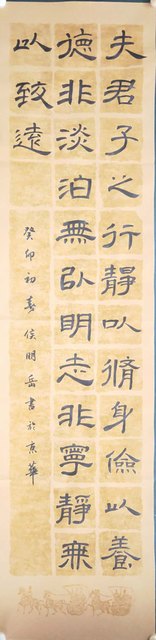 夫君子之行靜以脩身儉以養
德非淡泊無以明志非寧靜無
以致遠
癸卯初春侯明岳書於京華